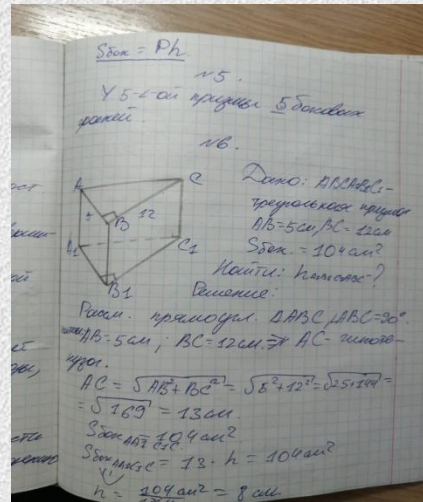 Sбок = Ph
№5.
У 5-и-ой призмы 5 боковых
граней
№6.
A
C
5
B
12
A1
C1
B1
Дано: ABCA1B1C1-
треугольная призма
AB=5см, BC=12см
Sбок. = 104 см²
Найти: h -?
Решение:
Рассм. прямоугл. ΔABC, ABC=90°
AB=5см; BC=12см ⇒ AC- гипоте-
нуза.
AC = √AB²+BC² = √5²+12² = √25+144 =
= √169 = 13 см.
Sбок AA1C1C = 104 см²
Sбок AA1C1C = 13 · h = 104 см²
h = 104 см² = 8 см